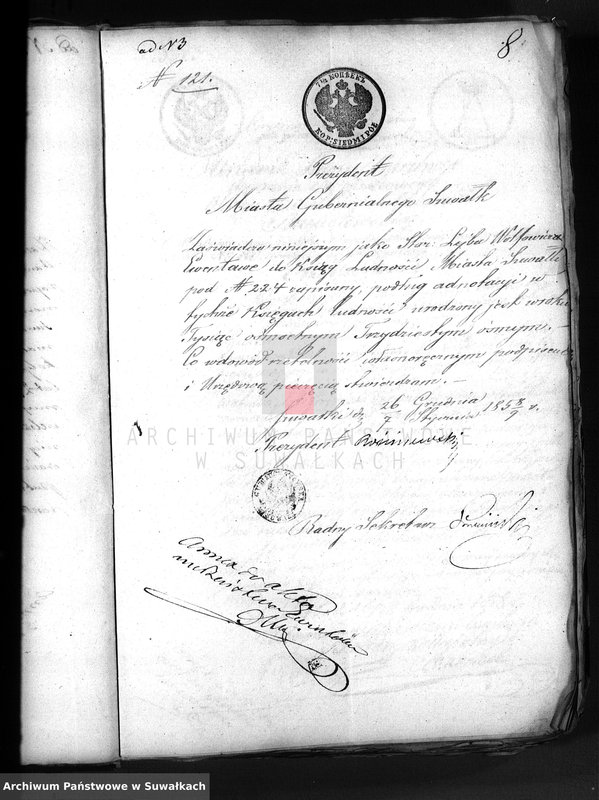 ad N3
8
N 121.
7½ КОПѢЕКЪ
KOP: SIEDM I PÓŁ
Prezydent
Miasta Gubernialnego Suwałk
Zaświadcza niniejszym jako Star: Lejba Wolfowicz
do Ksiąg Ludności Miasta Suwałk
pod N 224 zapisany, podług adnotacyi w
tychże Księgach ludności urodzony jest w roku
Tysiąc ośmsetnym Trzydziestym ósmym. —
Co w dowód rzetelności własnoręcznym podpisem
i Urzędową pieczęcią stwierdzam. —
Suwałki d. 26 Grudnia / 7 Stycznia 1858/9 r.
Prezydent
Radny Sekretarz
Annex do aktu
ARCHIWUM PAŃSTWOWE
W SUWAŁKACH
Archiwum Państwowe w Suwałkach